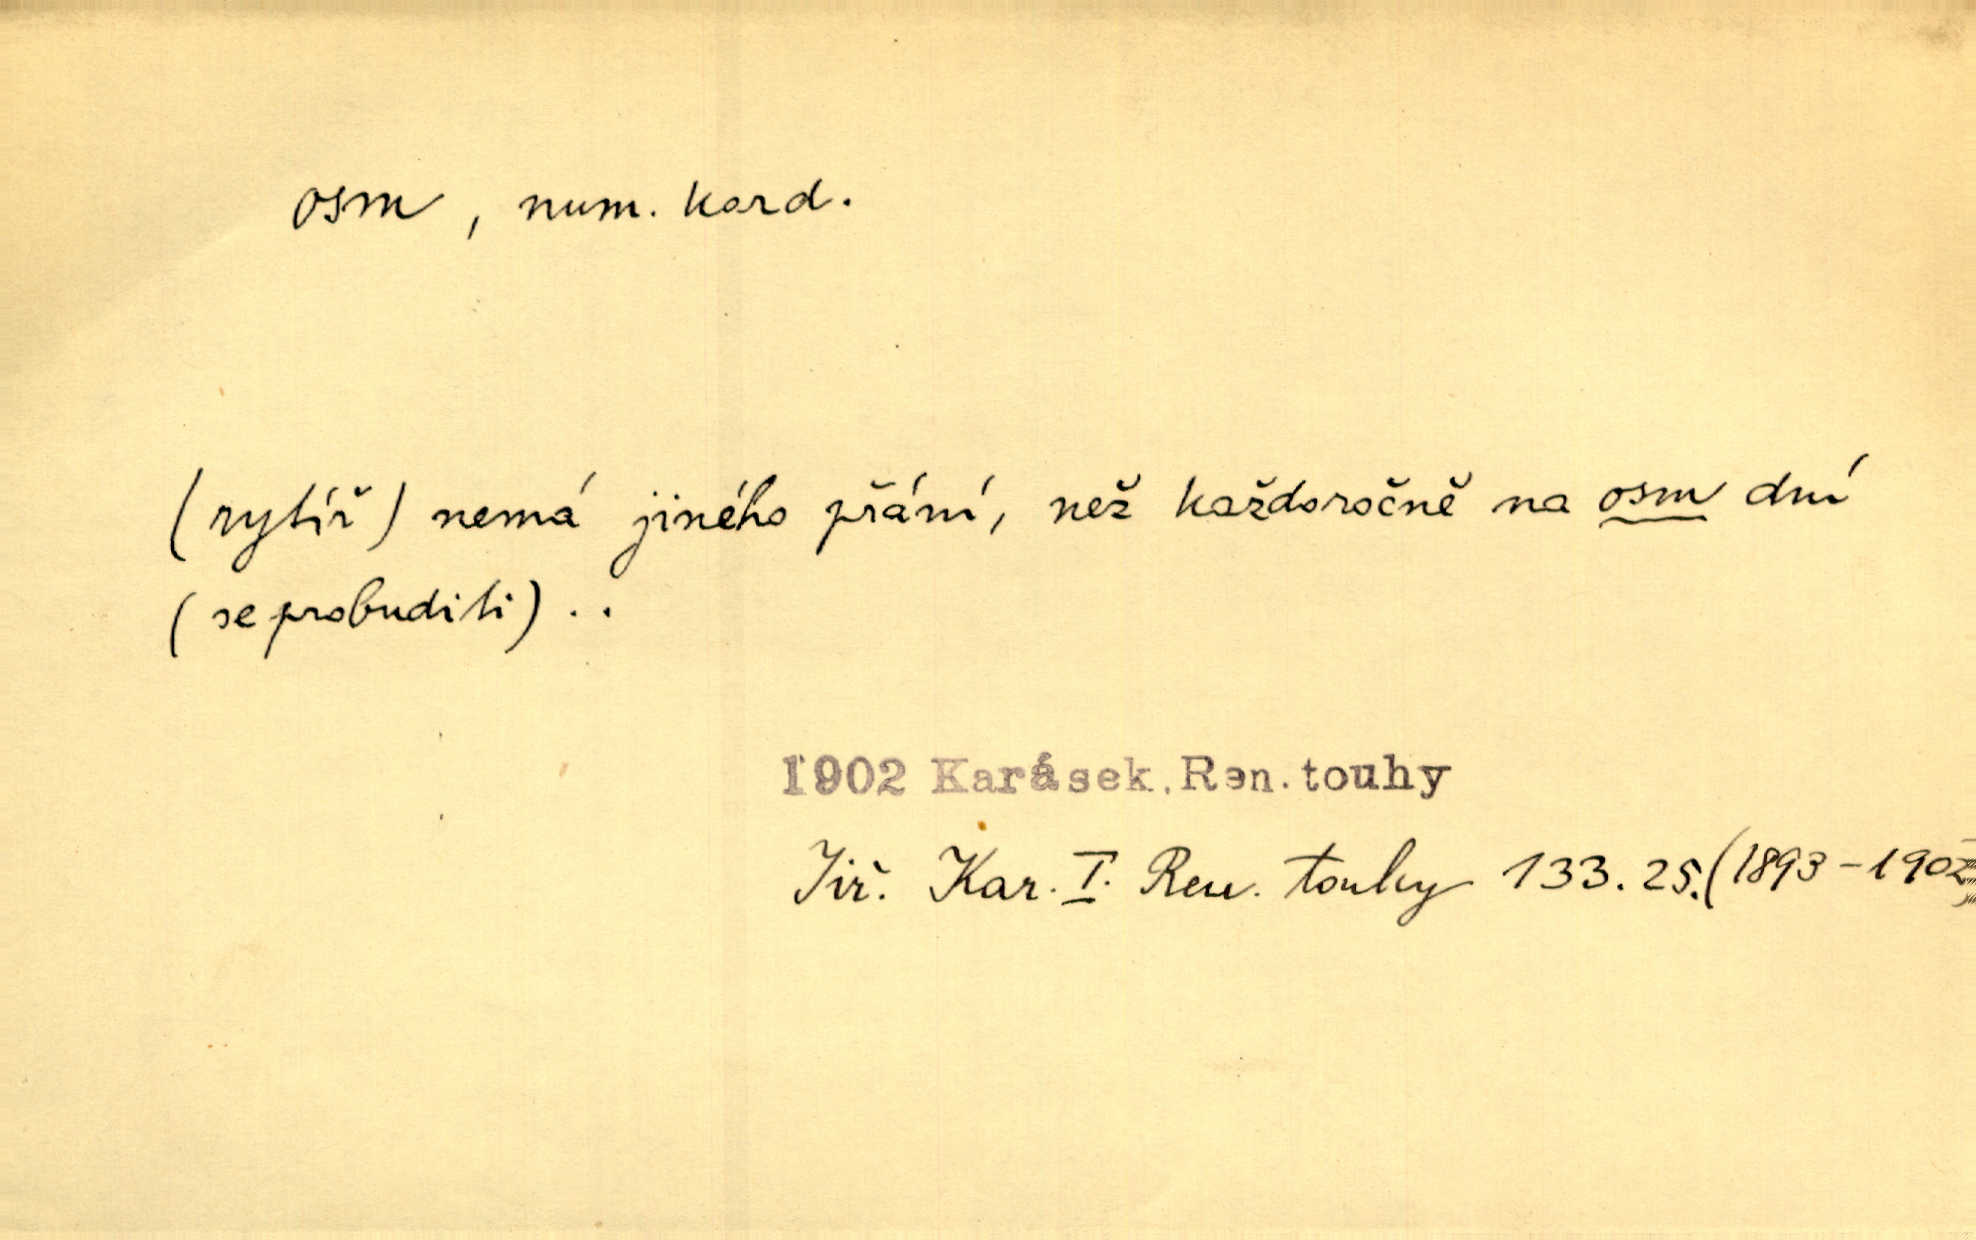 osm, num. kard.
(rytíř) nemá jiného přání, než každoročně na osm dní
(se probuditi) . .
1902 Karásek. Ren. touhy
Jiř. Kar. I. Ren. touhy 133. 25. (1893-1902)